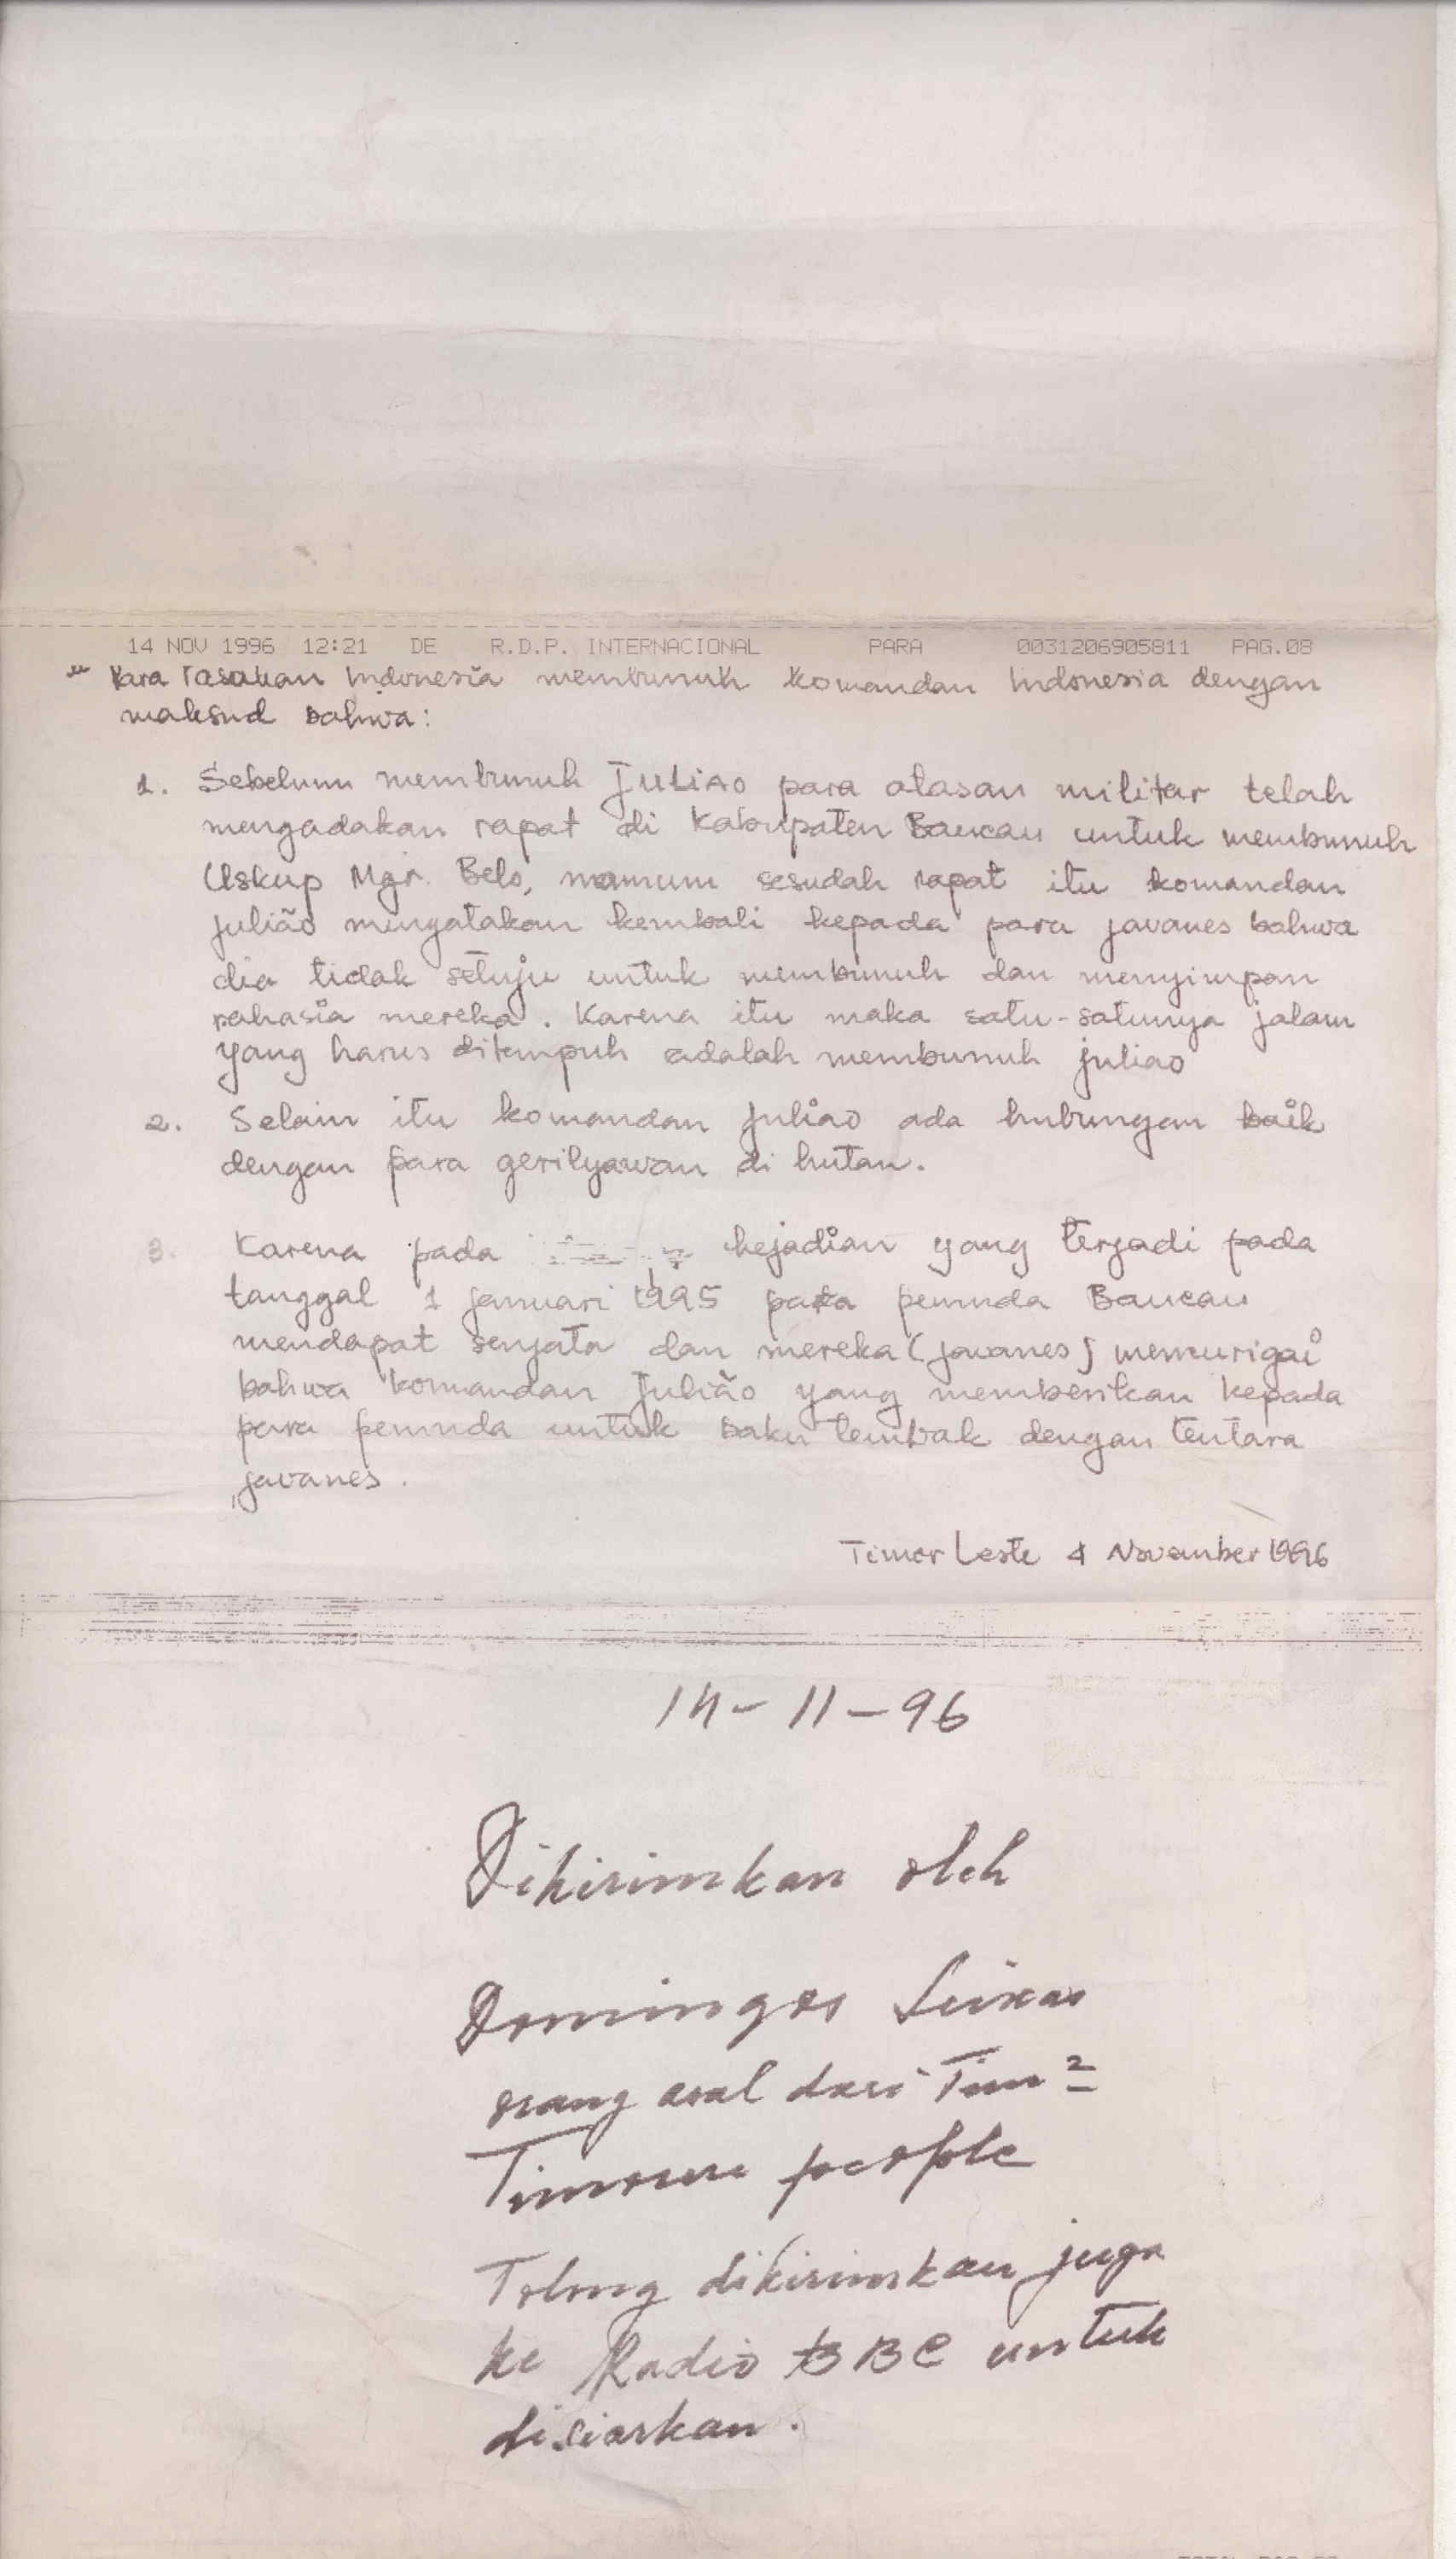 14 NOV 1996 12:21 DE R.D.P. INTERNACIONAL PARA 0031206905811 PAG.08
Para Pasukan Indonesia membunuh komandan Indonesia dengan
maksud bahwa:
1. Sebelum membunuh Juliao para atasan militar telah
mengadakan rapat di Kabupaten Baucau untuk membunuh
Uskup Mgr. Belo, namum sesudah rapat itu komandan
Julião mengatakan kembali kepada para javanes bahwa
dia tidak setuju untuk membunuh dan menyimpan
rahasia mereka. Karena itu maka satu-satunya jalam
yang harus ditempuh adalah membunuh juliao
2. Selain itu komandan Juliao ada hubungan baik
dengan para gerilyawan di hutan.
3. Karena pada kejadian yang terjadi pada
tanggal 1 januari 1995 para pemuda Baucau
mendapat senjata dan mereka (javanes) memurigai
bahwa komandan Julião yang memberikan kepada
para pemuda untuk baku tembak dengan tentara
javanes.
Timor Leste 4 November 1996
14-11-96
Dikirimkan oleh
Domingos Seixas
orang asal dari Tim2
Timorese people
Tolong dikirimkan juga
ke Radio BBC untuk
disiarkan.